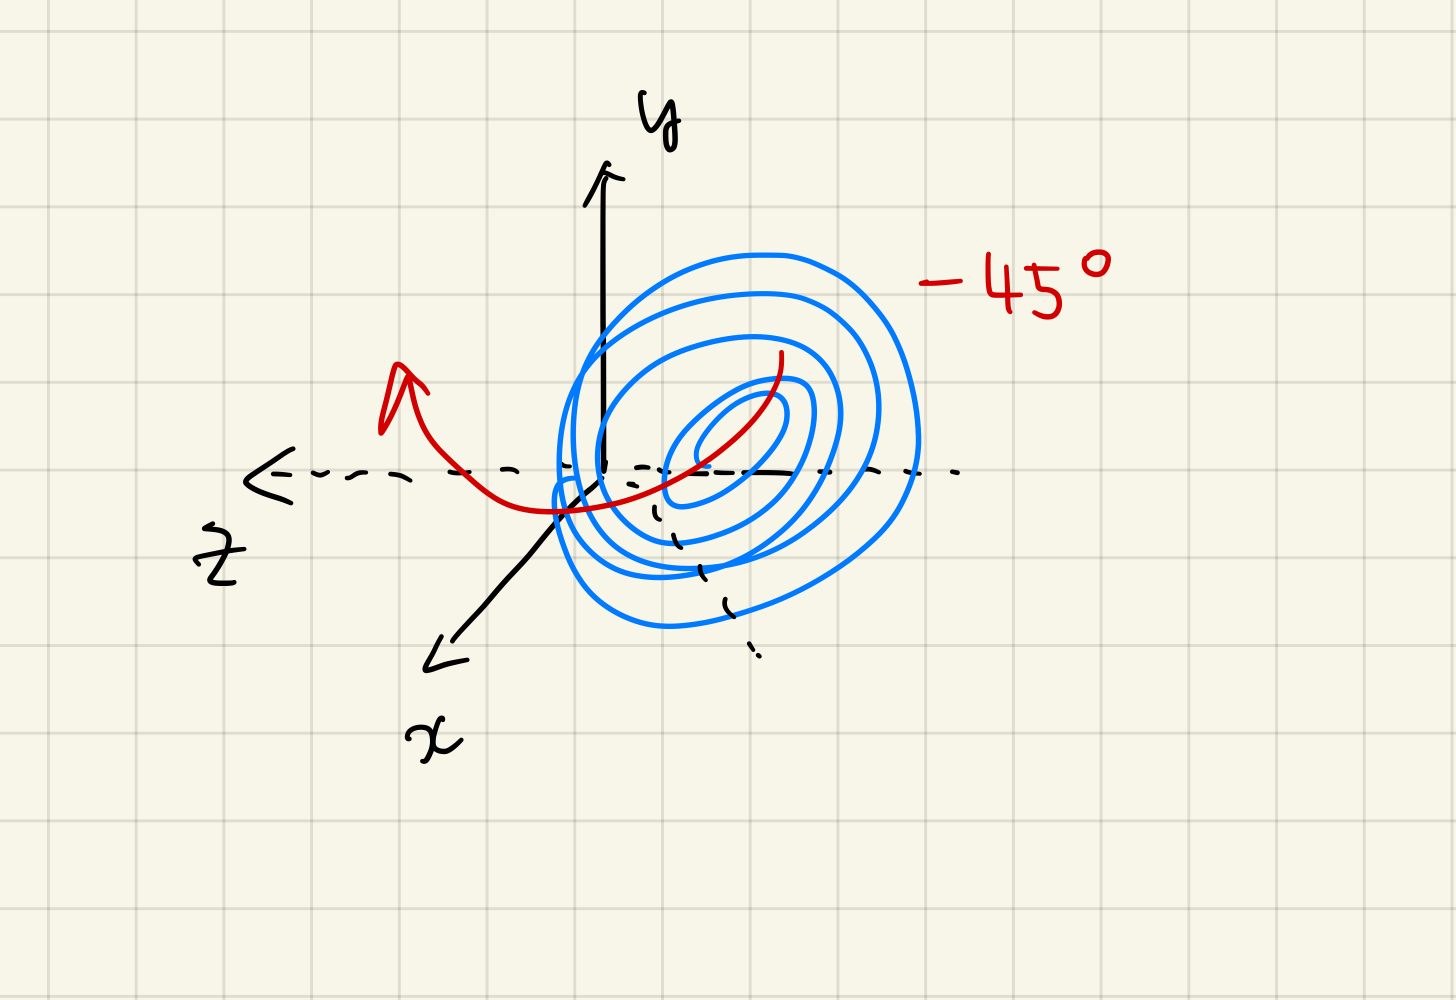 y
-45°
z
x